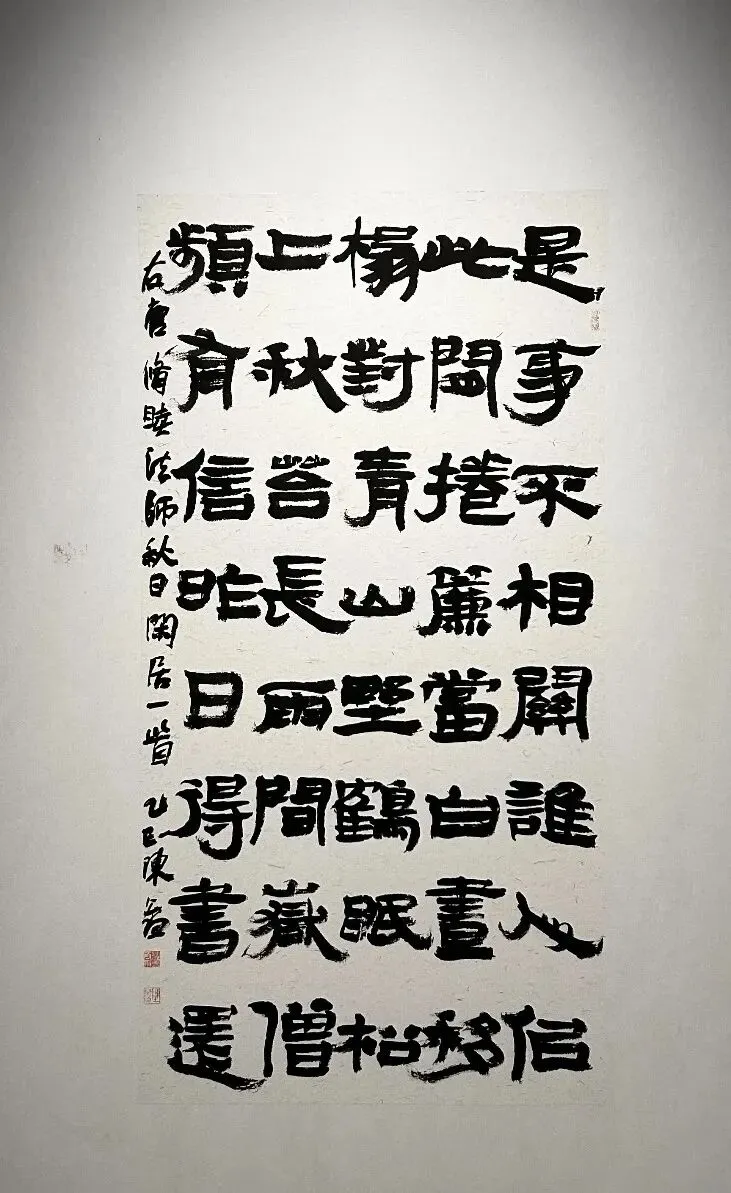 是事不相關誰人佀
此閒捲簾當白晝移
榻對青山野鶴眠松
上秋苔長雨間嶽僧
頻有信昨日得書還
右唐脩睦法師秋日閑居一首 乙巳陳